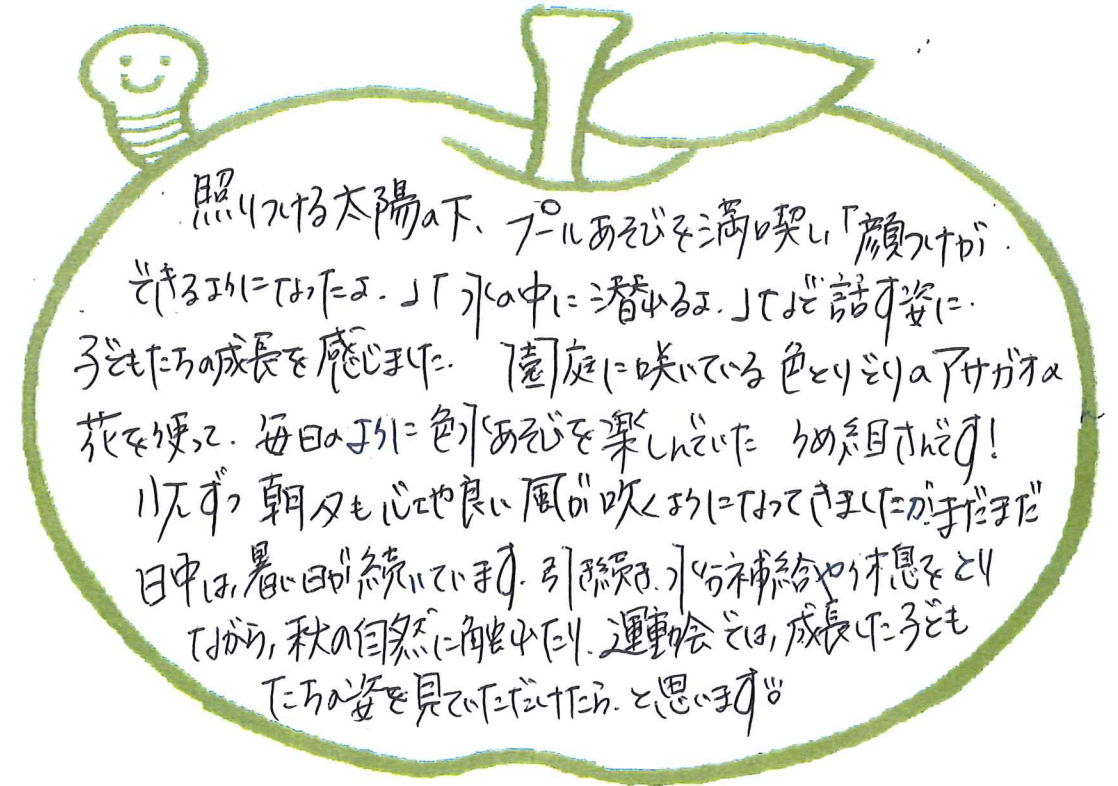 照りつける太陽の下、プールあそびを満喫し「顔つけが
できるようになったよ。」「水の中に潜れるよ。」など話す姿に
子どもたちの成長を感じました。園庭に咲いている色とりどりのアサガオの
花を使って、毎日のように色水あそびを楽しんでいた うめ組さんです!
少しずつ朝夕も心地良い風が吹くようになってきましたが、まだまだ
日中は、暑い日が続いています。引き続き、水分補給や休息をとり
ながら、秋の自然に触れたり、運動会では、成長した子ども
たちの姿を見ていただけたら、と思います。